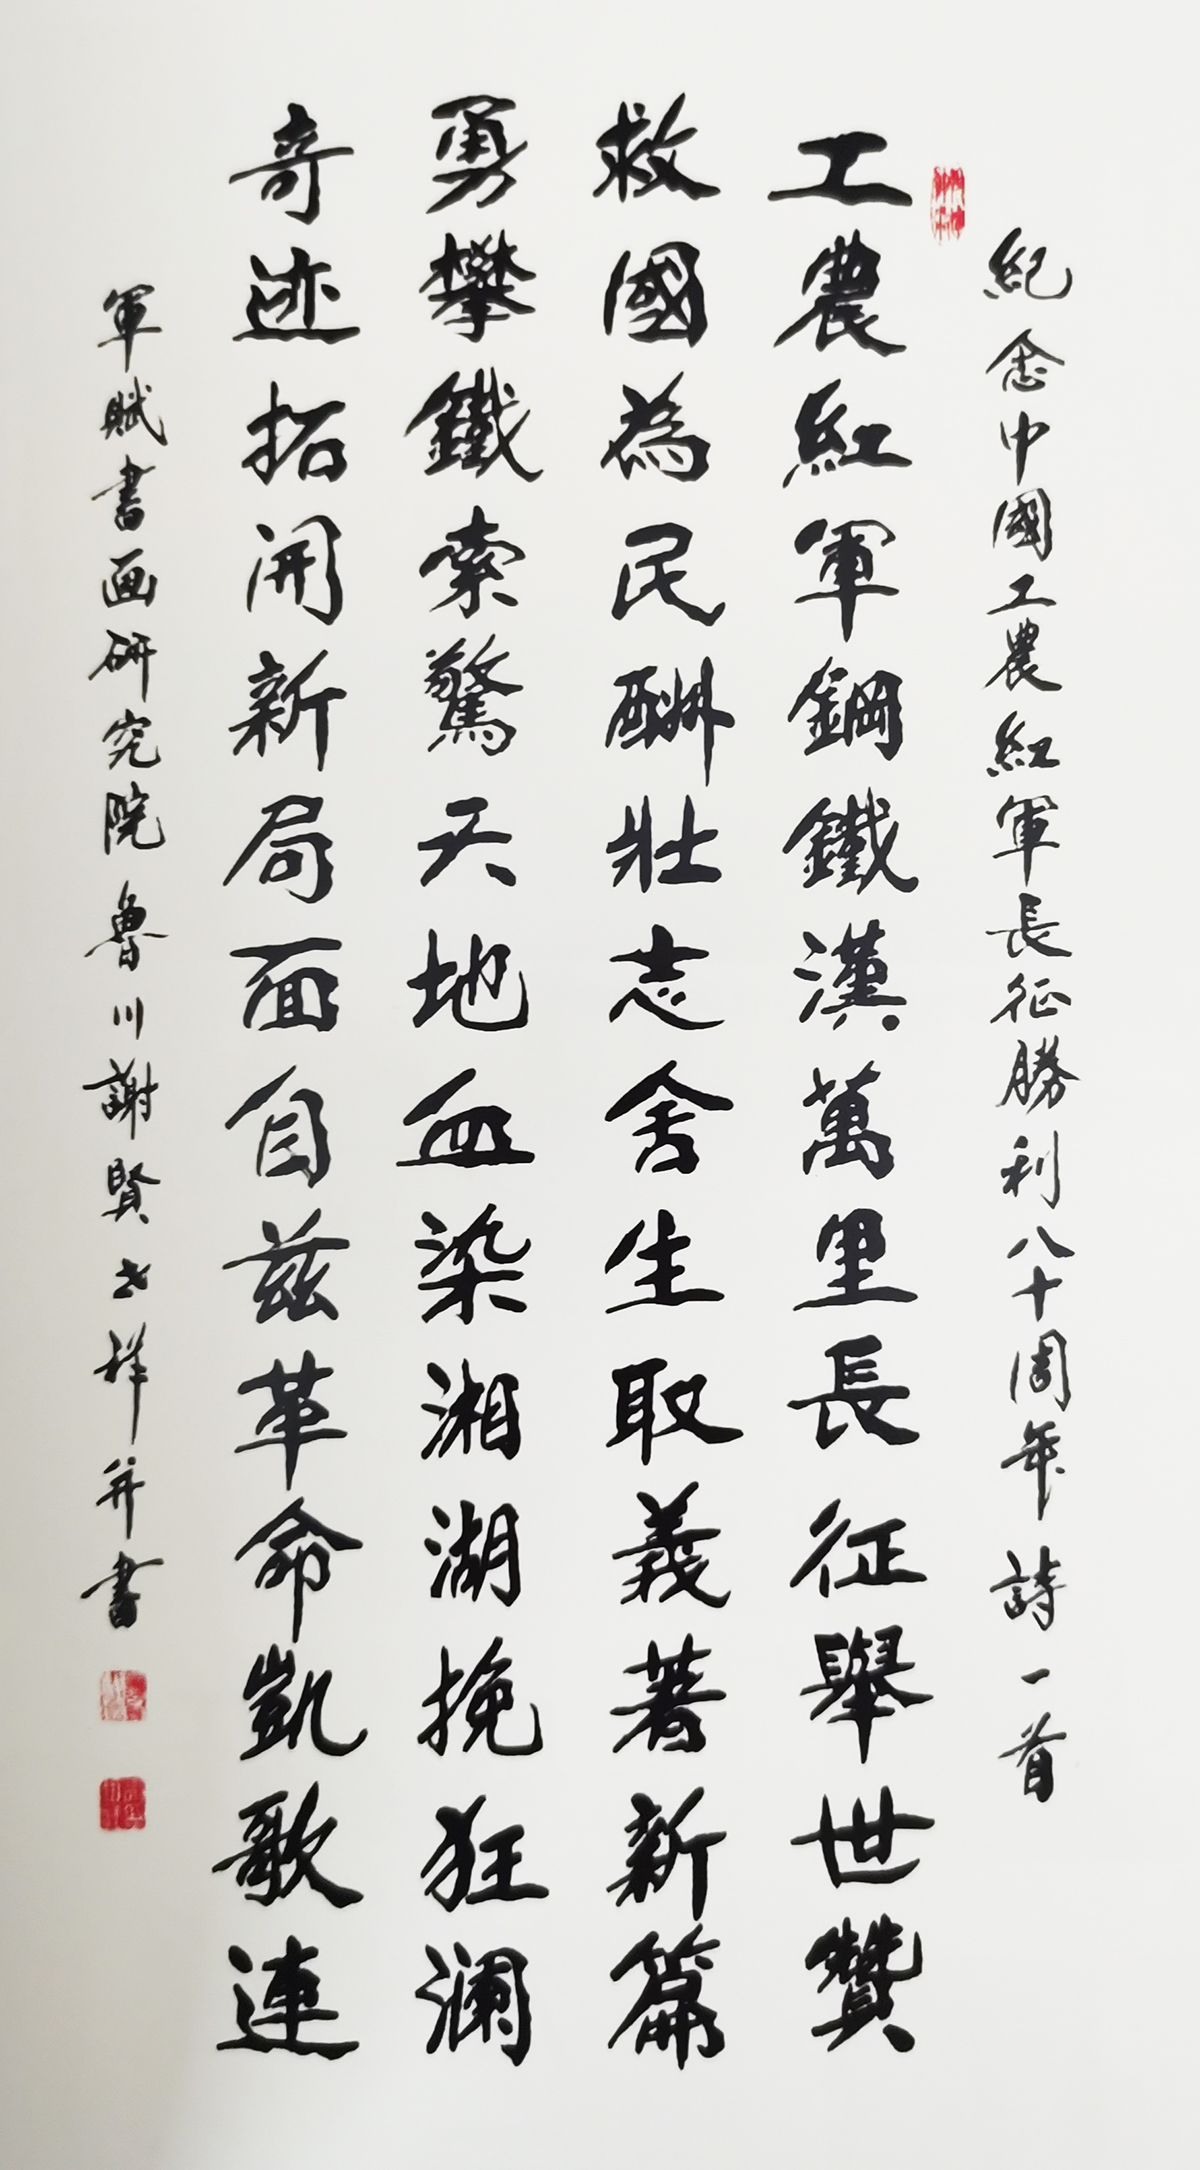 紀念中國工農紅軍長征勝利八十周年詩一首
工農紅軍鋼鐵漢萬里長征舉世贊
救國為民酬壯志舍生取義著新篇
勇攀鐵索驚天地血染湘湖挽狂瀾
奇迹拓開新局面自兹革命凱歌連
軍賦書画研究院魯川謝賢祥并書